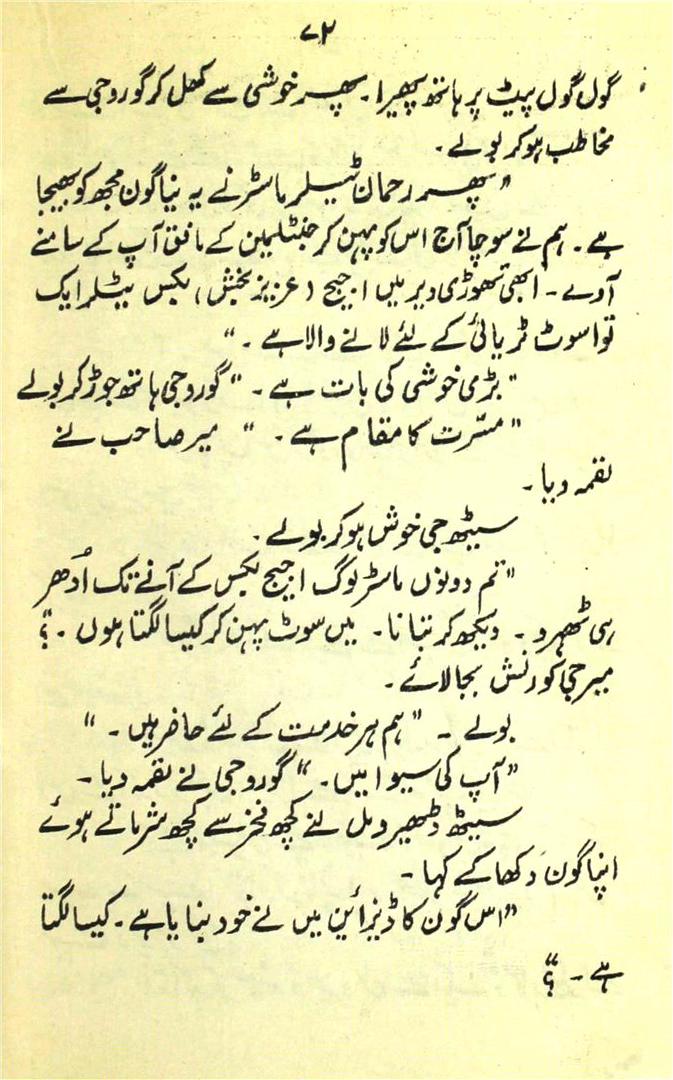 ۷۲
گول گول پیٹ پر ہاتھ پھیرا۔ پھر خوشی سے کھل کر گوروجی سے
مخاطب ہو کر بولے۔
"پھر رحمان ٹیلر ماسٹر نے یہ نیا گون مجھ کو بھیجا
ہے۔ ہم نے سوچا آج اس کو پہن کر جنٹلمین کے مافق آپ کے سامنے
آوے۔ ابھی تھوڑی دیر میں اجیج (عزیز بخش) بکس ٹیلر ایک
نوا سوٹ ٹریائی کے لئے لانے والا ہے۔"
"بڑی خوشی کی بات ہے۔" گوروجی ہاتھ جوڑ کر بولے
"مسّرت کا مقام ہے۔" میر صاحب نے
لقمہ دیا۔
سیٹھ جی خوش ہو کر بولے۔
"تم دونوں ماسڑ لوگ اجیج بکس کے آنے تک اُدھر
ہی ٹھہرو۔ دیکھ کر بتانا۔ میں سوٹ پہن کر کیسا لگتا ہوں۔؟"
میر جی کورنش بجا لائے۔
بولے۔ "ہم ہر خدمت کے لئے حاضر ہیں۔"
"آپ کی سیوا میں۔" گوروجی نے لقمہ دیا۔
سیٹھ ڈھیرومل نے کچھ فخر سے کچھ شرماتے ہوئے
اپنا گون دکھا کے کہا۔
"اس گون کا ڈیزائین میں نے خود بنایا ہے۔ کیسا لگتا
ہے۔؟"